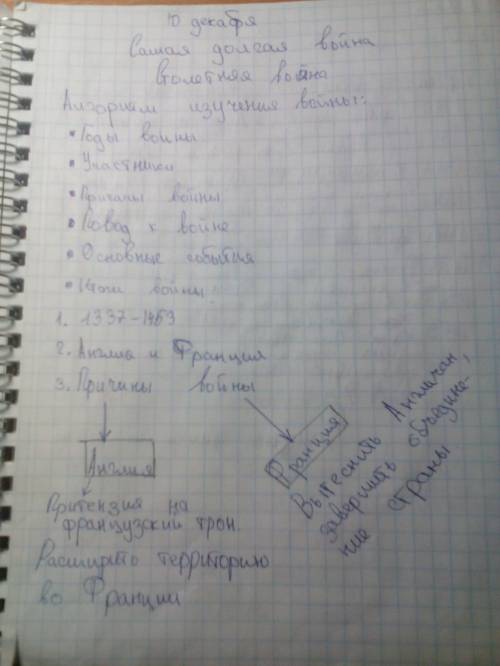 10 декабря
Самая долгая война
Столетняя война
Алгоритм изучения войны:
• Годы войны
• Участники
• Причины войны
• Повод к войне
• Основные события
• Итоги войны
1. 1337-1453
2. Англия и Франция
3. Причины войны
Англия
Притензия на
французский трон.
Расширять территорию
во Франции
Франция
Вытеснить Англичан,
завершить объедине-
ние страны